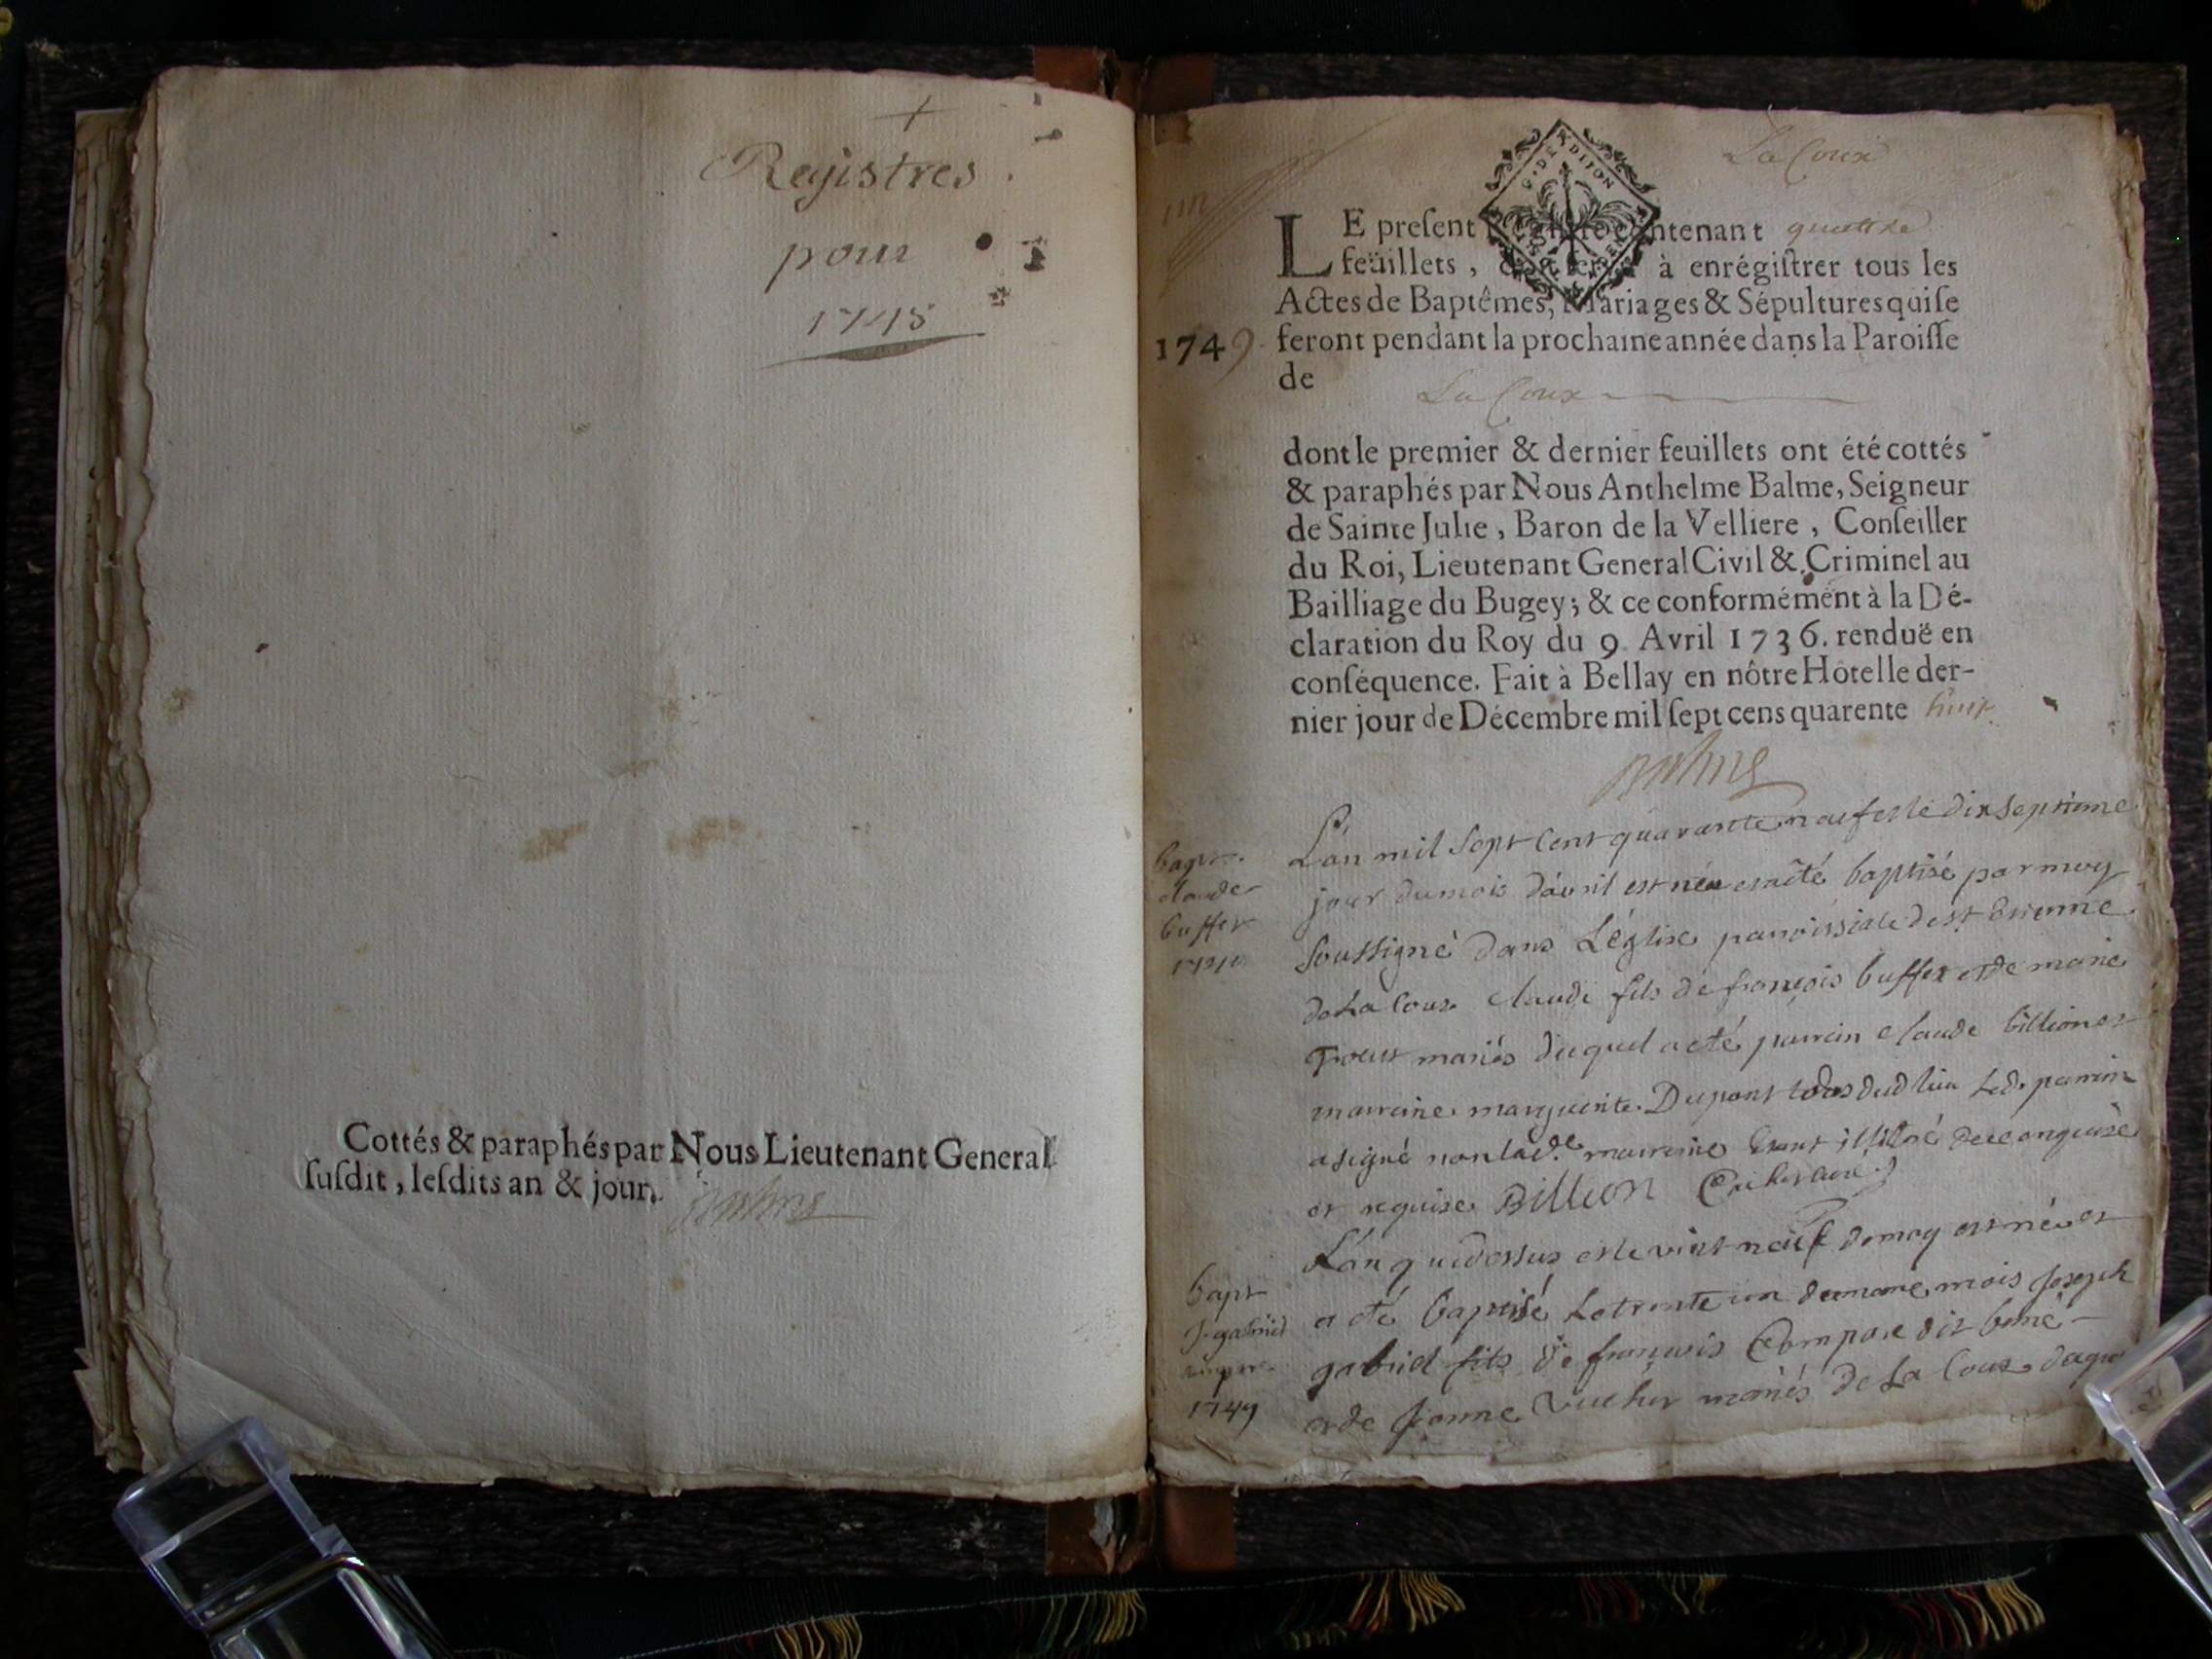 Registres
pour
1748
Cottés & paraphés par Nous Lieutenant General
ſuſdit, leſdits an & jour.
Balme
La Coux
G. DE DIJON
LE preſent Regiſtre contenant quattre
feüillets, à enrégiſtrer tous les
Actes de Baptêmes, Mariages & Sépultures qui ſe
1749 feront pendant la prochaine année dans la Paroiſſe
de
La Coux
dont le premier & dernier feuillets ont été cottés
& paraphés par Nous Anthelme Balme, Seigneur
de Sainte Julie, Baron de la Velliere, Conſeiller
du Roi, Lieutenant General Civil & Criminel au
Bailliage du Bugey; & ce conformément à la Dé-
claration du Roy du 9. Avril 1736. renduë en
conſéquence. Fait à Bellay en nôtre Hôtel le der-
nier jour de Décembre mil ſept cens quarente huit
Balme
bapt.
claude
buffet
L'an mil sept cent quarante neuf et le dix septieme
jour du mois d'avril est né et a été baptisé par moy
soussigné dans L'église parroissiale de st Etienne
de La Coux claude fils de françois buffet et de marie
mariés duquel a été parrain claude billion et
marraine marguerite Dupont tous dud lieu led. parrain
a signé non lad.e marraine illitré de ce enquise
et requise Billion
bapt
J. gabriel
1749
L'an que dessus et le vint neuf de may est né et
a été baptisé le trente un du meme mois Joseph
gabriel fils de françois Compare dit bené
et de Jeanne mariés de La Coux